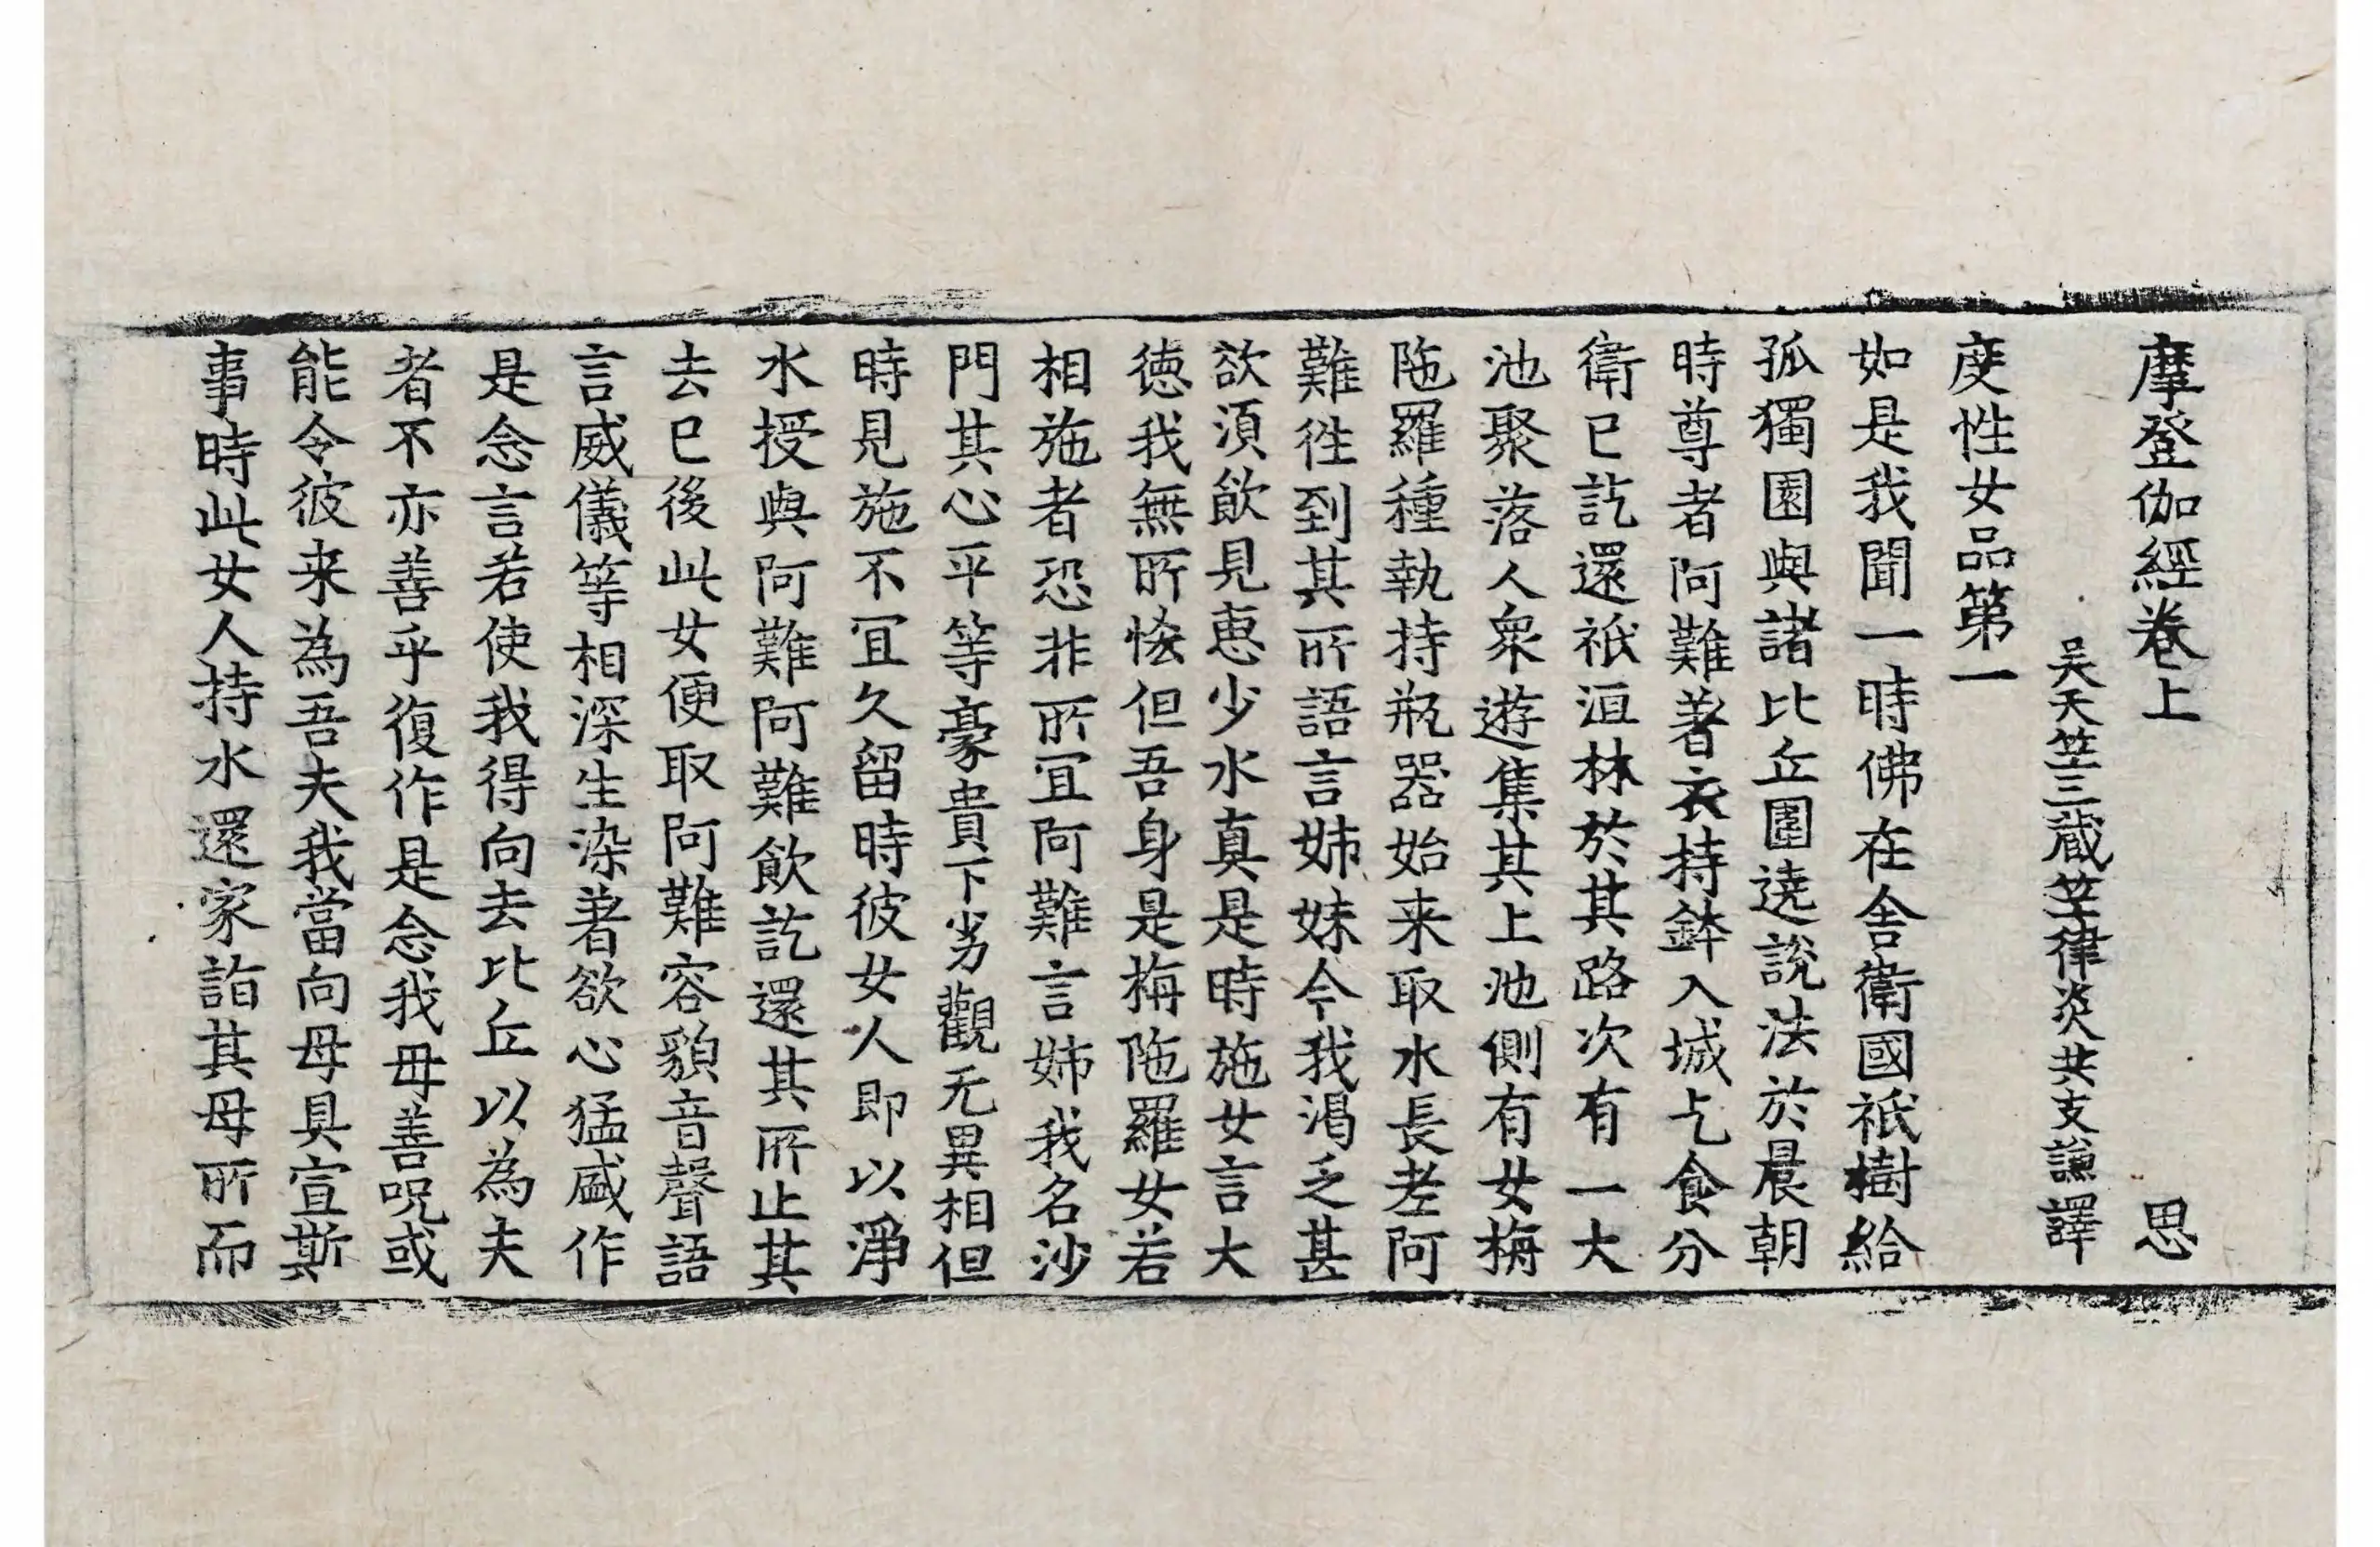 摩登伽經卷上 思
吴天竺三藏竺律炎共支謙譯
度性女品第一
如是我聞一時佛在舍衛國祇樹給
孤獨園與諸比丘圍遶說法於晨朝
時尊者阿難著衣持鉢入城乞食分
衛已訖還祇洹林於其路次有一大
池聚落人衆遊集其上池側有女栴
陁羅種執持瓶器始来取水長老阿
難徃到其所語言姊妹今我渴乏甚
欲須飲見惠少水真是時施女言大
徳我無所悋但吾身是栴陁羅女若
相施者恐非所冝阿難言姊我名沙
門其心平等豪貴下劣觀无異相但
時見施不冝久留時彼女人即以淨
水授與阿難阿難飲訖還其所止其
去已後此女便取阿難容貌音聲語
言威儀等相深生染著欲心猛盛作
是念言若使我得向去比丘以為夫
者不亦善乎復作是念我母善呪或
能令彼来為吾夫我當向母具宣斯
事時此女人持水還家詣其母所而